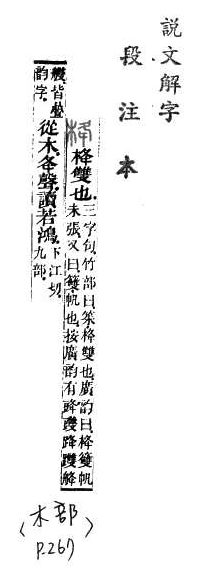 説文解字
段注本
栙 栙雙也三字句竹部曰䇶栙雙也廣韵曰栙䉶帆
未張又曰䉶帆也按廣韵有䂫䂄跭躞艂
艭皆㬪
韵字從木夅聲讀若鴻下江切
九部
〈木部〉
P.267